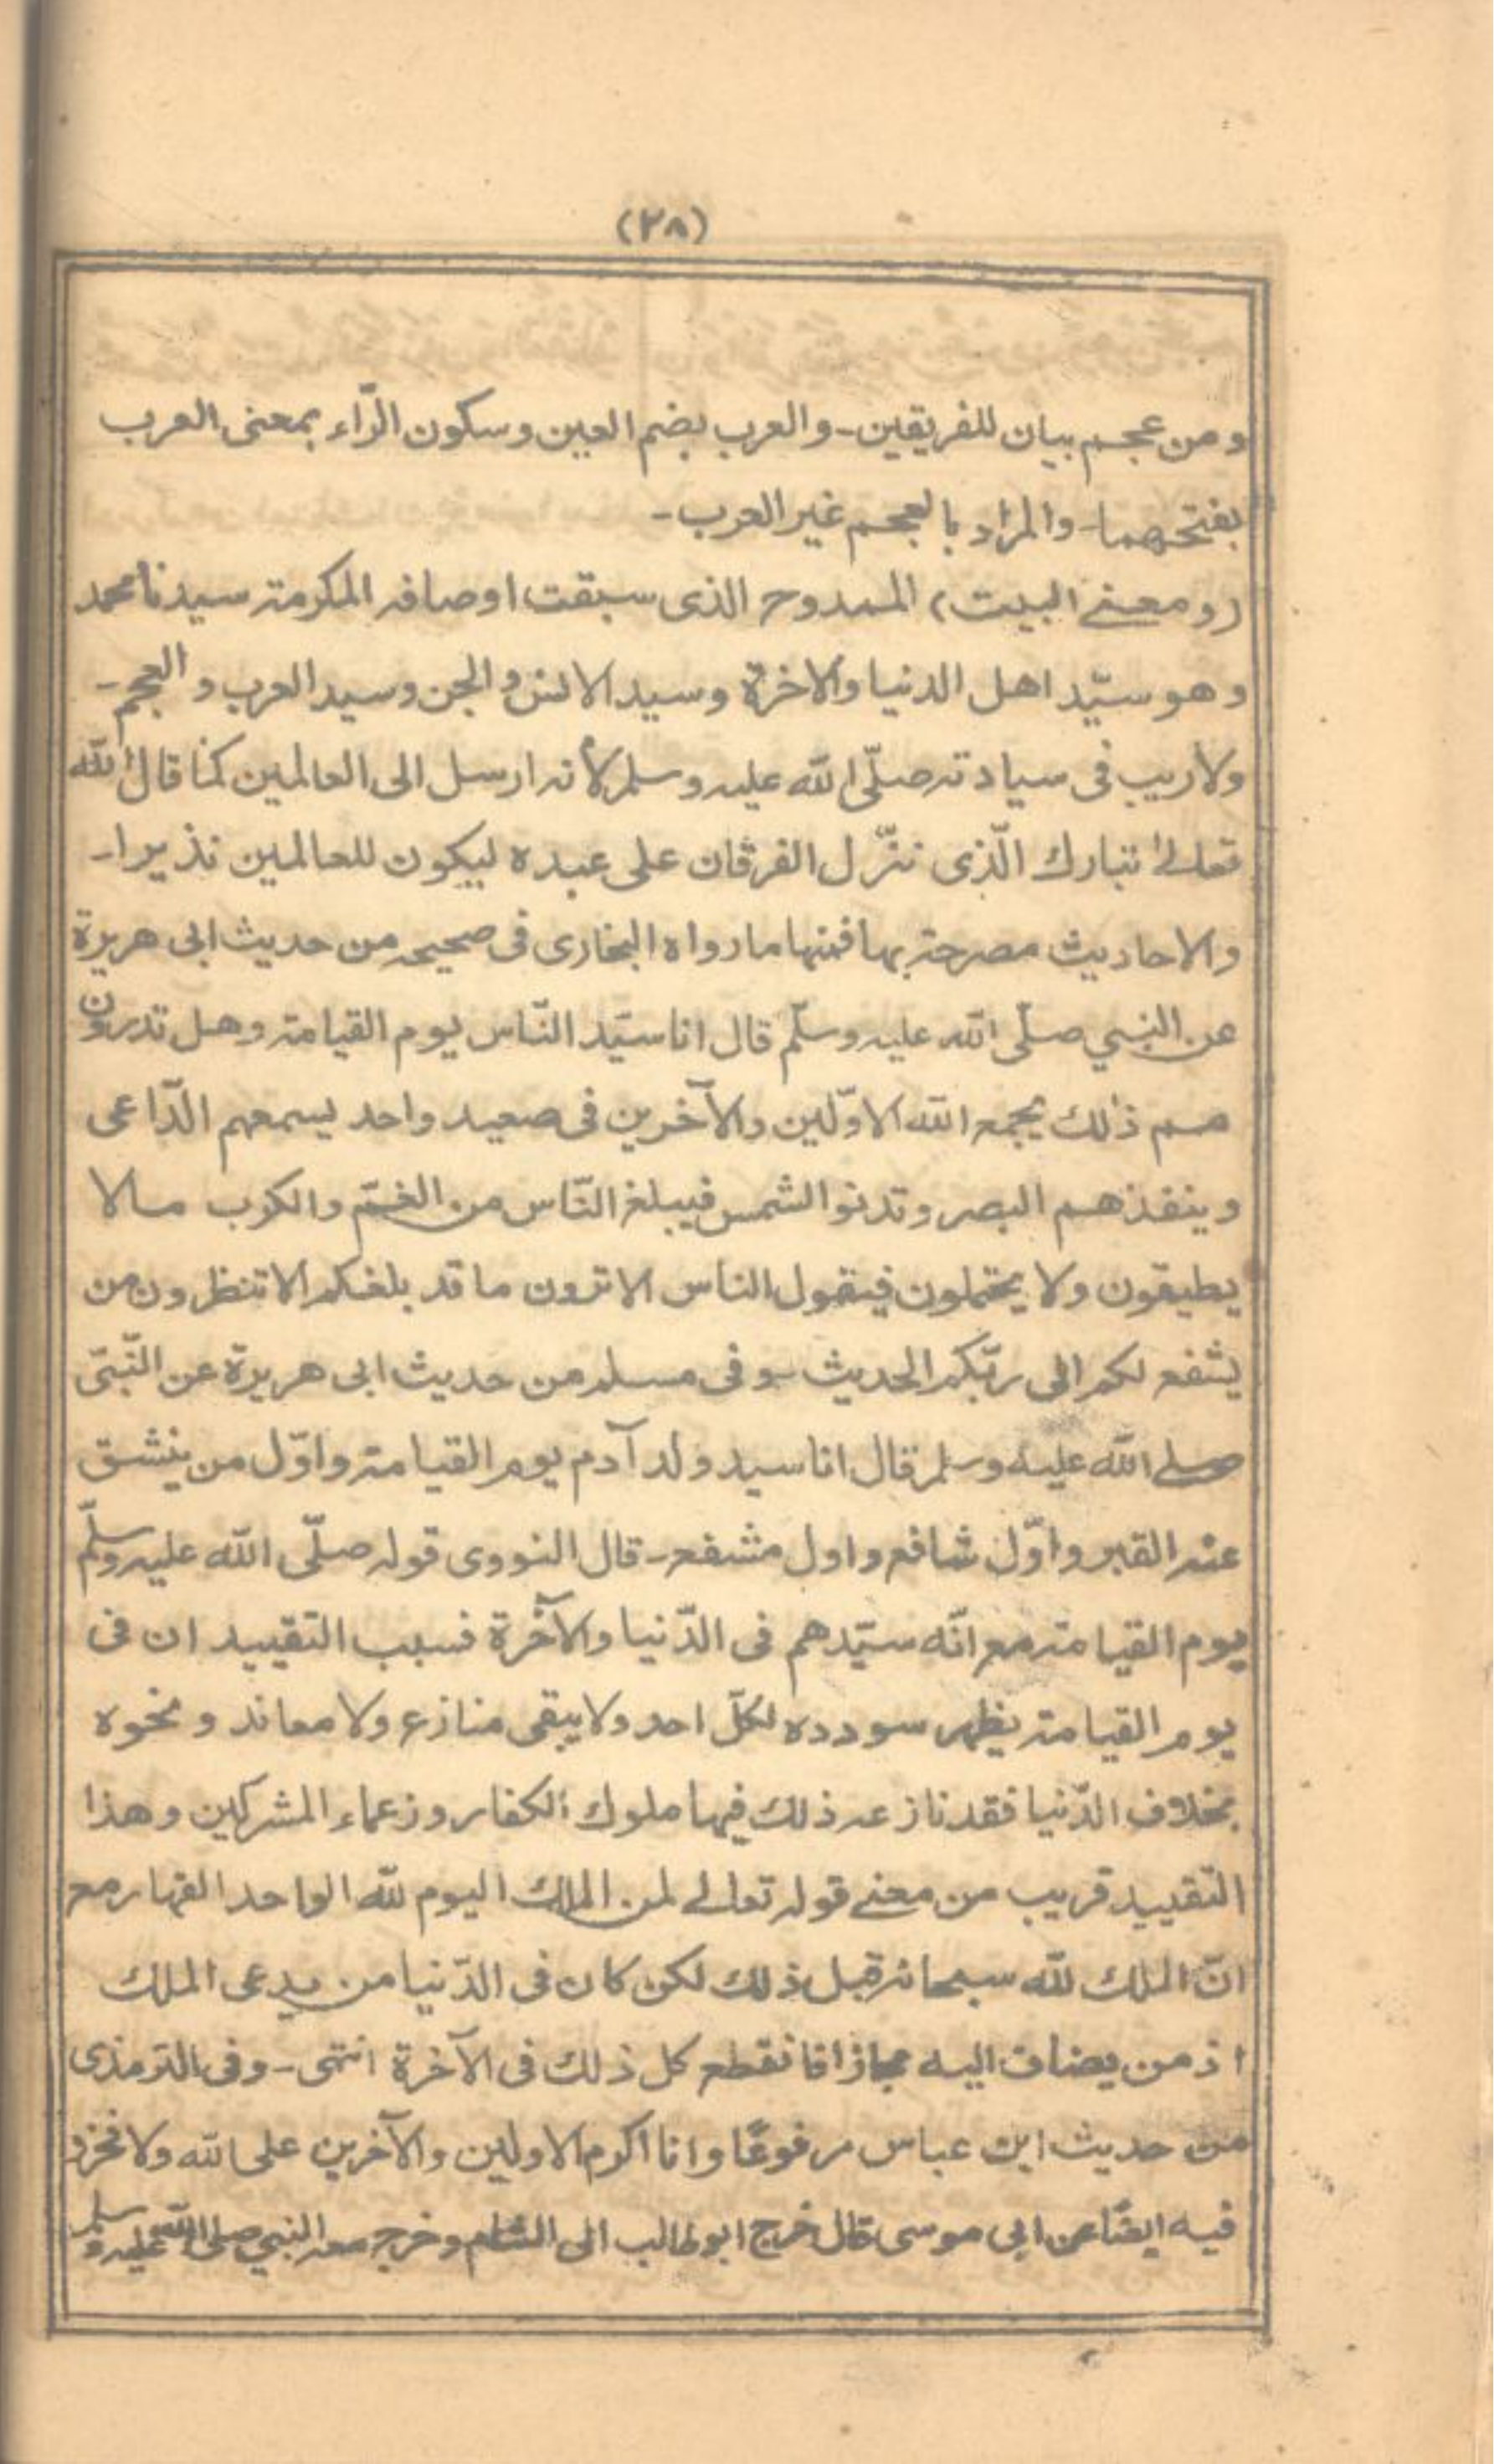 (٢٨)
ومن عجم بيان للفريقين۔ والعرب بضم العين وسكون الرّاء بمعنى العرب
بفتحهما۔ والمراد بالعجم غير العرب۔
(ومعنے البيت) الممدوح الذى سبقت اوصافه المكرمة سيدنا محمد
وهو سيّد اهل الدنيا والاخرة وسيد الانس والجن وسيد العرب والعجم۔
ولاريب فى سيادته صلّى الله عليه وسلم لأنه ارسل الى العالمين كما قال الله
تعالےٰ تبارك الّذى نزّل الفرقان على عبده ليكون للعالمين نذيرا۔
والاحاديث مصرحة بها فمنها مارواه البخارى فى صحيحه من حديث ابى هريرة
عن النبي صلّى الله عليه وسلّم قال انا سيّد النّاس يوم القيامة وهل تدرون
مم ذٰلك يجمع الله الاوّلين والآخرين فى صعيد واحد يسمعهم الدّاعى
وينفذهم البصر وتدنو الشمس فيبلغ النّاس من الغمّ والكرب مالا
يطيقون ولا يحتملون فيقول الناس الاترون ما قد بلغكم الاتنظرون من
يشفع لكم الى ربّكم الحديث۔ وفى مسلم من حديث ابى هريرة عن النّبىّ
صلے الله عليه وسلم قال انا سيد ولد آدم يوم القيامة واوّل من ينشق
عنه القبر واوّل شافع واول مشفع۔ قال النووى قوله صلّى الله عليه وسلّم
يوم القيامة مع انّه سيّدهم فى الدّنيا والآخرة فسبب التقييد ان فى
يوم القيامة يظهر سودده لكلّ احد ولايبقى منازع ولا معاند ونحوه
بخلاف الدّنيا فقد نازعه ذلك فيها ملوك الكفار وزعماء المشركين وهذا
التقييد قريب من معنے قوله تعالے لمن الملك اليوم لله الواحد القهار مع
انّ الملك لله سبحانه قبل ذلك لكن كان فى الدّنيا من يدعى الملك
اذ من يضاف اليه مجازا فانقطع كل ذلك فى الآخرة انتهى۔ وفى الترمذى
من حديث ابن عباس مرفوعًا وانا اكرم الاولين والآخرين على الله ولا فخر و
فيه ايضًا عن ابى موسى قال خرج ابوطالب الى الشام وخرج معه النبي صلى الله عليه وسلم